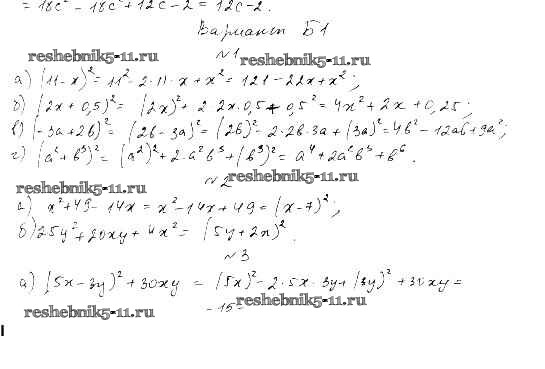 = 18c² - 18c² + 12c - 2 = 12c - 2.
Вариант Б1
reshebnik5-11.ru
№1
reshebnik5-11.ru
а) (11-x)² = 11² - 2·11·x + x² = 121 - 22x + x²;
б) (2x + 0,5)² = (2x)² + 2 2x·0,5 + 0,5² = 4x² + 2x + 0,25;
в) (-3a+2b)² = (2b-3a)² = (2b)² - 2·2b·3a + (3a)² = 4b² - 12ab + 9a²;
г) (a² + b³)² = (a²)² + 2·a²b³ + (b³)² = a⁴ + 2a²b³ + b⁶.
reshebnik5-11.ru
№2
reshebnik5-11.ru
а) x² + 49 - 14x = x² - 14x + 49 = (x-7)²;
б) 25y² + 20xy + 4x² = (5y + 2x)².
№3
а) (5x - 3y)² + 30xy = (5x)² - 2·5x·3y + (3y)² + 30xy =
reshebnik5-11.ru
- 15 -
reshebnik5-11.ru